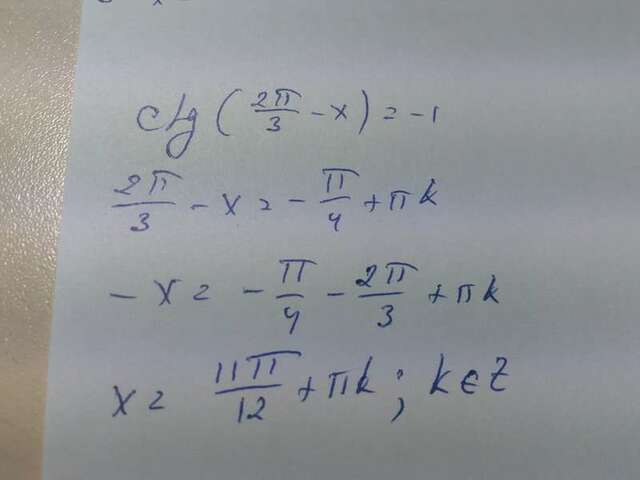 ctg (2π/3 - x) = -1
2π/3 - x = - π/4 + πk
- x = - π/4 - 2π/3 + πk
x = 11π/12 + πk; k∈Z